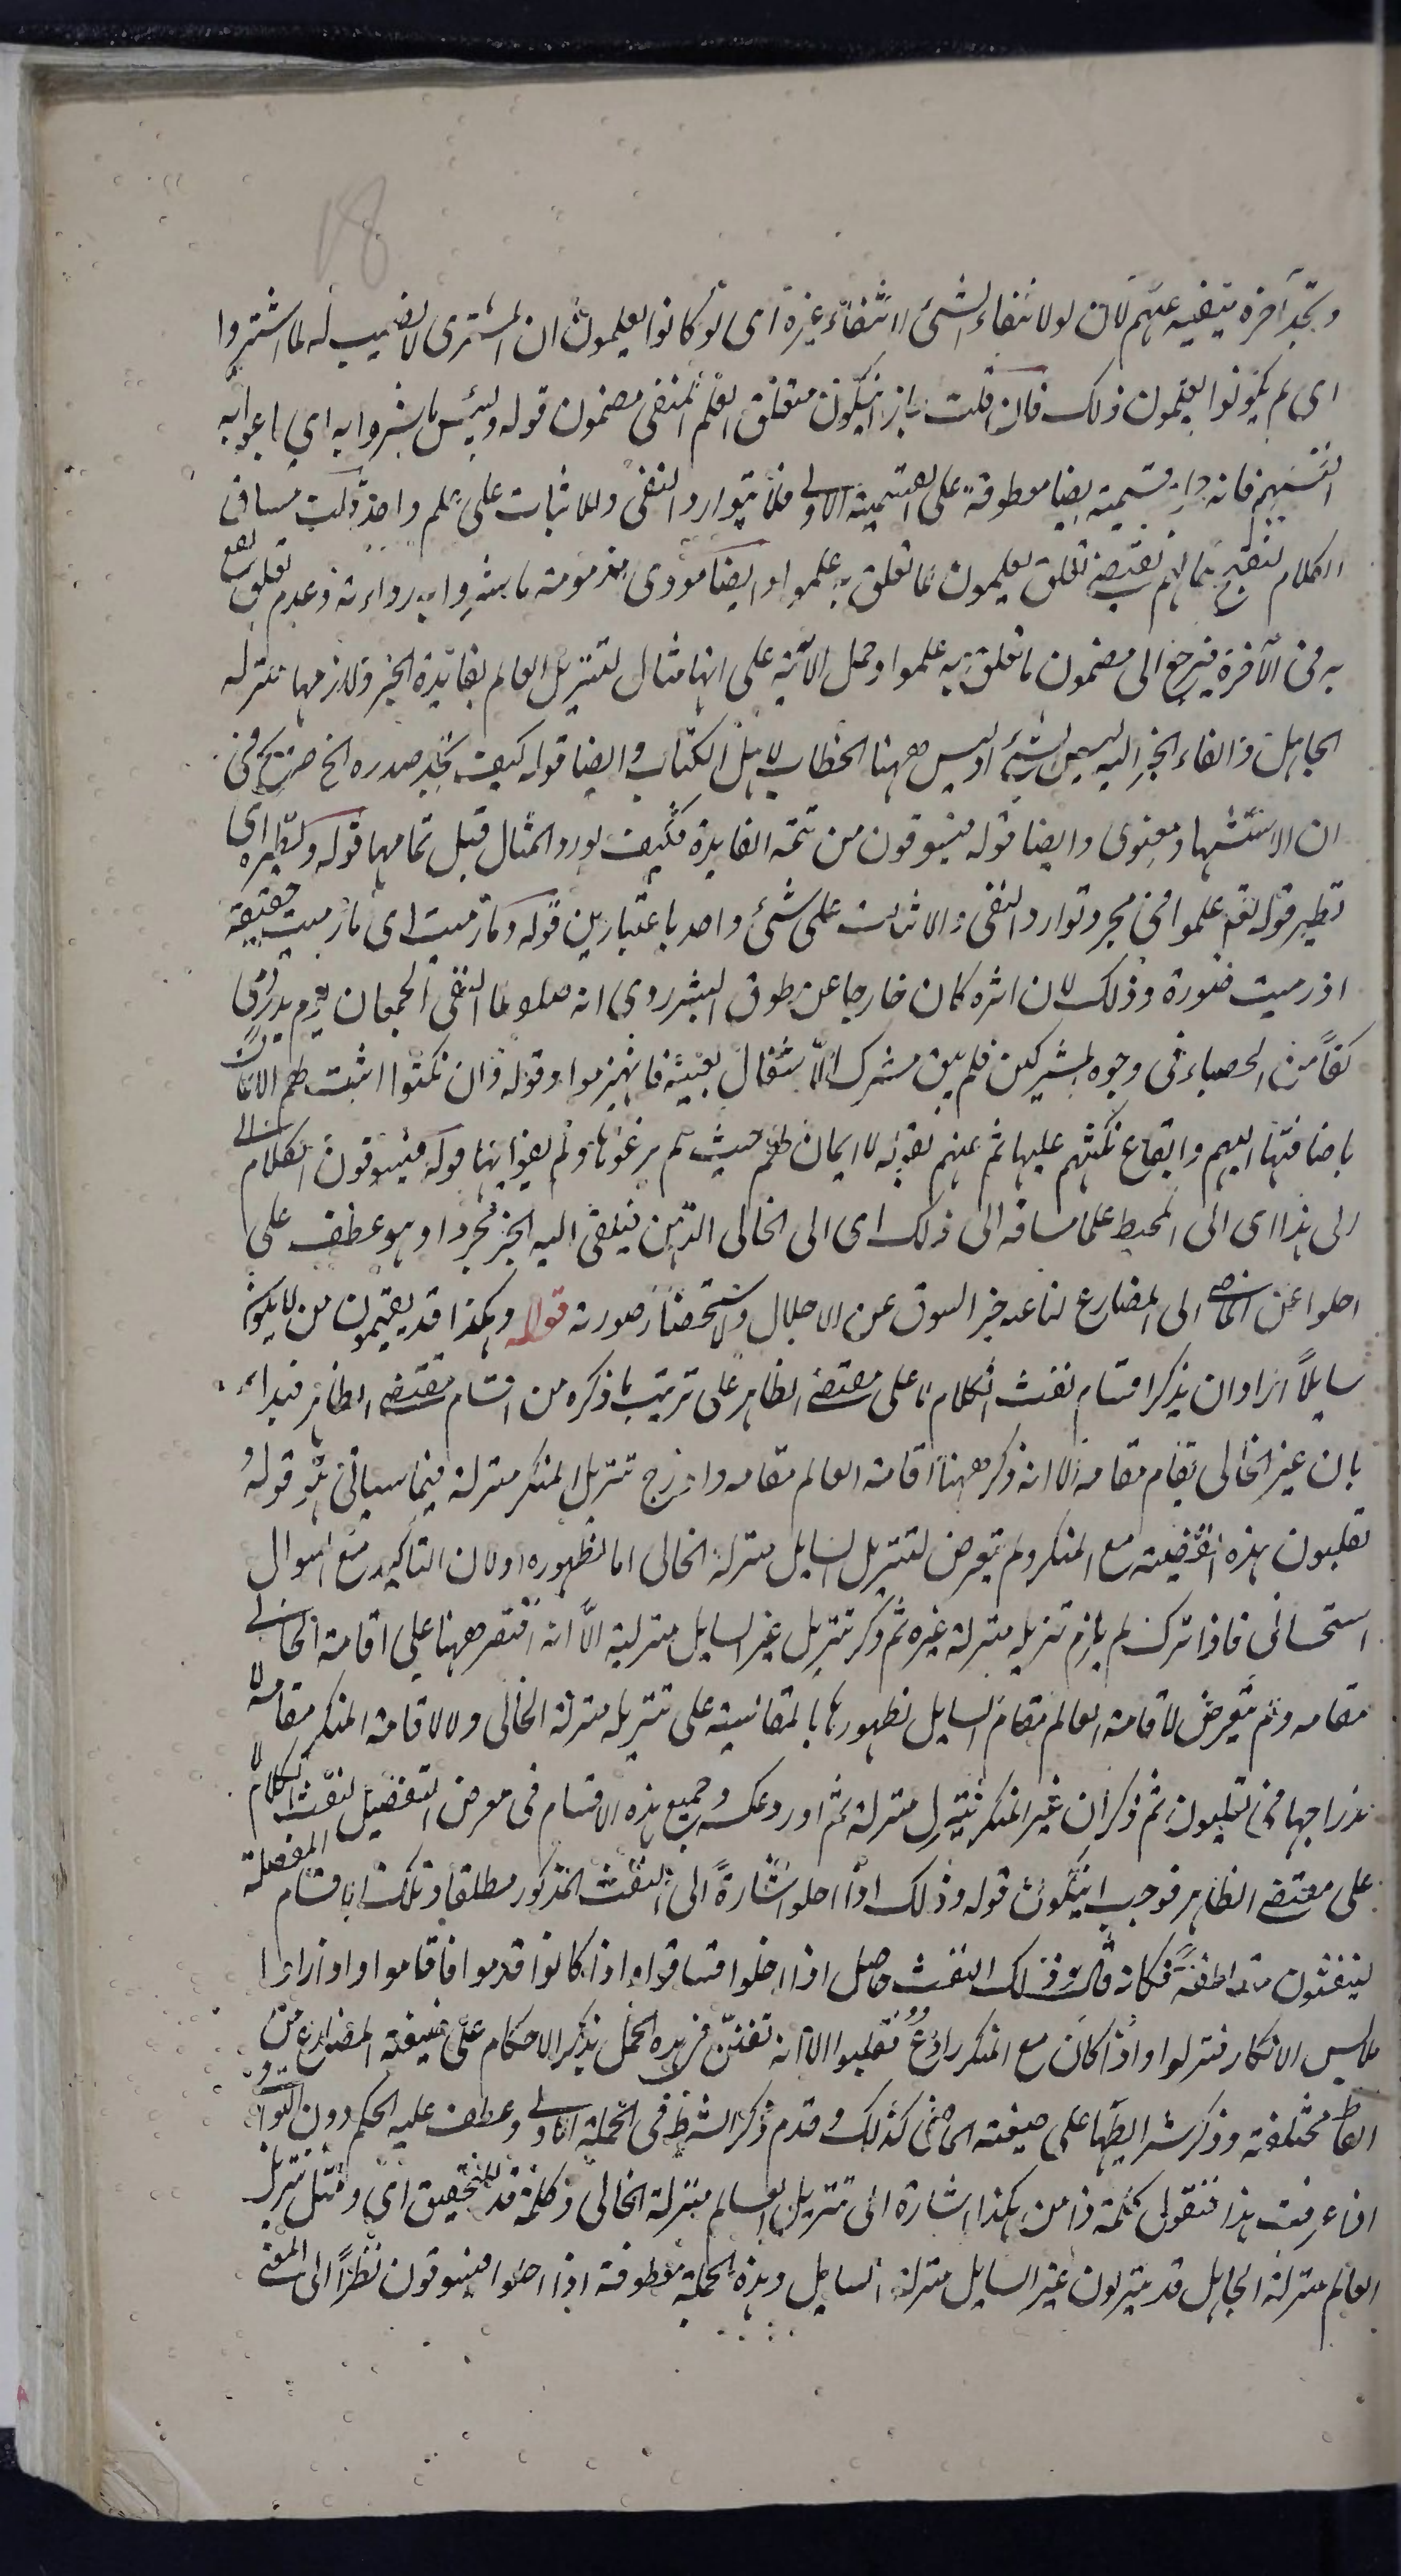 18
وتجد آخره ينفيه عنهم لان لو لانتفاء الشئ لانتفاء غيره اى لو كانوا يعلمون ان المشترى لا نصيب له لما اشتروا
اى لم يكونوا يعلمون ذلك فان قلت جاز ان يكون متعلق العلم المنفى مضمون قوله ولبئس ما شروا به اي باعوا به
انفسهم فانه جواب قسمية ايضا معطوفة على القسمية الاولى فلا يتوارد النفى والاثبات على علم واحد قلت مساق
الكلام لتقبيح حالهم يقتضى تعلق يعلمون بما تعلق به علموا وايضا مودى مذمومة ما شروا به رداءته وعدم تعلق نفع
به فى الآخرة فيرجع الى مضمون ما تعلق به علموا وحمل الآية على انها مثال لتنزيل العالم بفايدة الخبر ولازمها منزلة
الجاهل فى القاء الخبر اليه ليس بشئ اذ ليس ههنا الخطاب لاهل الكتاب وايضا قوله كيف تجد صدره الخ صريح فى
ان الاستشهاد معنوى وايضا قوله فيسوقون من تتمة الفايدة فكيف يورد المثال قبل تمامها قوله ونظيره اى
نظير قوله تع علموا فى مجرد توارد النفى والاثبات على شئ واحد باعتبارين قوله وما رميت اى ما رميت حقيقة
اذ رميت صورة وذلك لان اثره كان خارجا عن طوق البشر روى انه صلعم لما التقى الجمعان يوم بدر رمى
كفا من الحصباء فى وجوه المشركين فلم يبق مشرك الا شغل بعينه فانهزموا وقوله وان نكثوا اثبت لهم الايمان
باضافتها اليهم وايقاع نكثهم عليها ثم عنهم بقوله لا ايمان لهم حيث لم يرعوها ولم يفوا بها قوله فيسوقون الكلام
الى هذا اى الى المحيط علما مساقه الى ذلك اى الى الخالى الذهن فيلقى اليه الخبر مجردا وهو عطف على
احلوا عن الماضى الى المضارع لتأخر السوق عن الاحلال ولاستحضار صورته قوله وهكذا قد يقيمون من لا يكون
سايلاً اراد ان يذكر اقسام نفث الكلام لا على مقتضى الظاهر على ترتيب ما ذكره من اقسام مقتضى الظاهر فبدا
بان غير الخالى يقام مقامه الا انه ذكر ههنا اقامة العالم مقامه وادرج تنزيل المنكر منزلته فيما سيأتى من قوله
يقلبون هذه القضية مع المنكر ولم يتعرض لتنزيل السايل منزلة الخالى اما لظهوره او لان التأكيد مع السوال
استحسانى فاذا ترك لم يلزم تنزيله منزلة غيره ثم ذكر تنزيل غير السايل منزلته الا انه اقتصر ههنا على اقامة الخالى
مقامه ولم يتعرض لاقامة العالم مقام السايل لظهورها بالمقايسة على تنزيله منزلة الخالى ولا لاقامة المنكر مقامه
لاندراجها فى يقلبون ثم ذكر ان غير المنكر ينزل منزلته ثم اورد عكسه وجميع هذه الاقسام فى معرض التفصيل لنفث الكلام لا
على مقتضى الظاهر فوجب ان يكون قوله وذلك اذا احلوا اشارة الى النفث المذكور مطلقا وتلك الاقسام المفصلة
لينفثون متعاطفة فكانه قال وذلك النفث حاصل اذا احلوا فساقوا واذا كانوا قدموا فاقاموا واذا راوا
ملابس الانكار فنزلوا واذا كان مع المنكر رادع فقلبوا الا انه تفنن فى هذه الجمل بذكر الاحكام على صيغة المضارع من
الفاظ مختلفة وذكر شرايطها على صيغة الماضى كذلك وقدم ذكر الشرط فى الجملة الاولى وعطف عليه الحكم دون البواقى
اذا عرفت هذا فنقول كلمة ذا من هكذا اشارة الى تنزيل العالم منزلة الخالى وكلمة قد للتحقيق اى ومثل تنزيل
العالم منزلة الجاهل قد ينزلون غير السايل منزلة السايل وهذه الجملة معطوفة اذا احلوا فيسوقون نظراً الى المعنى